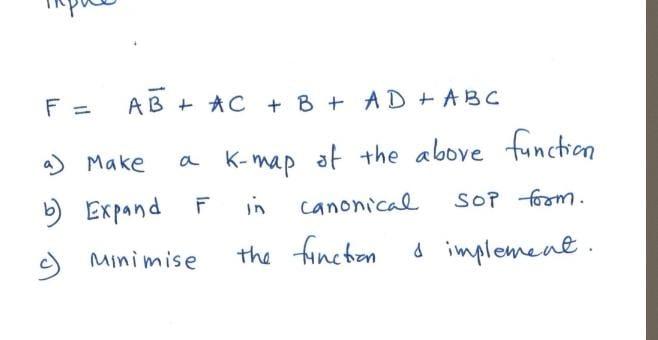 F = AB̅ + AC + B + AD + ABC
a) Make a K-map of the above function
b) Expand F in canonical SOP form.
c) Minimise the function & implement.